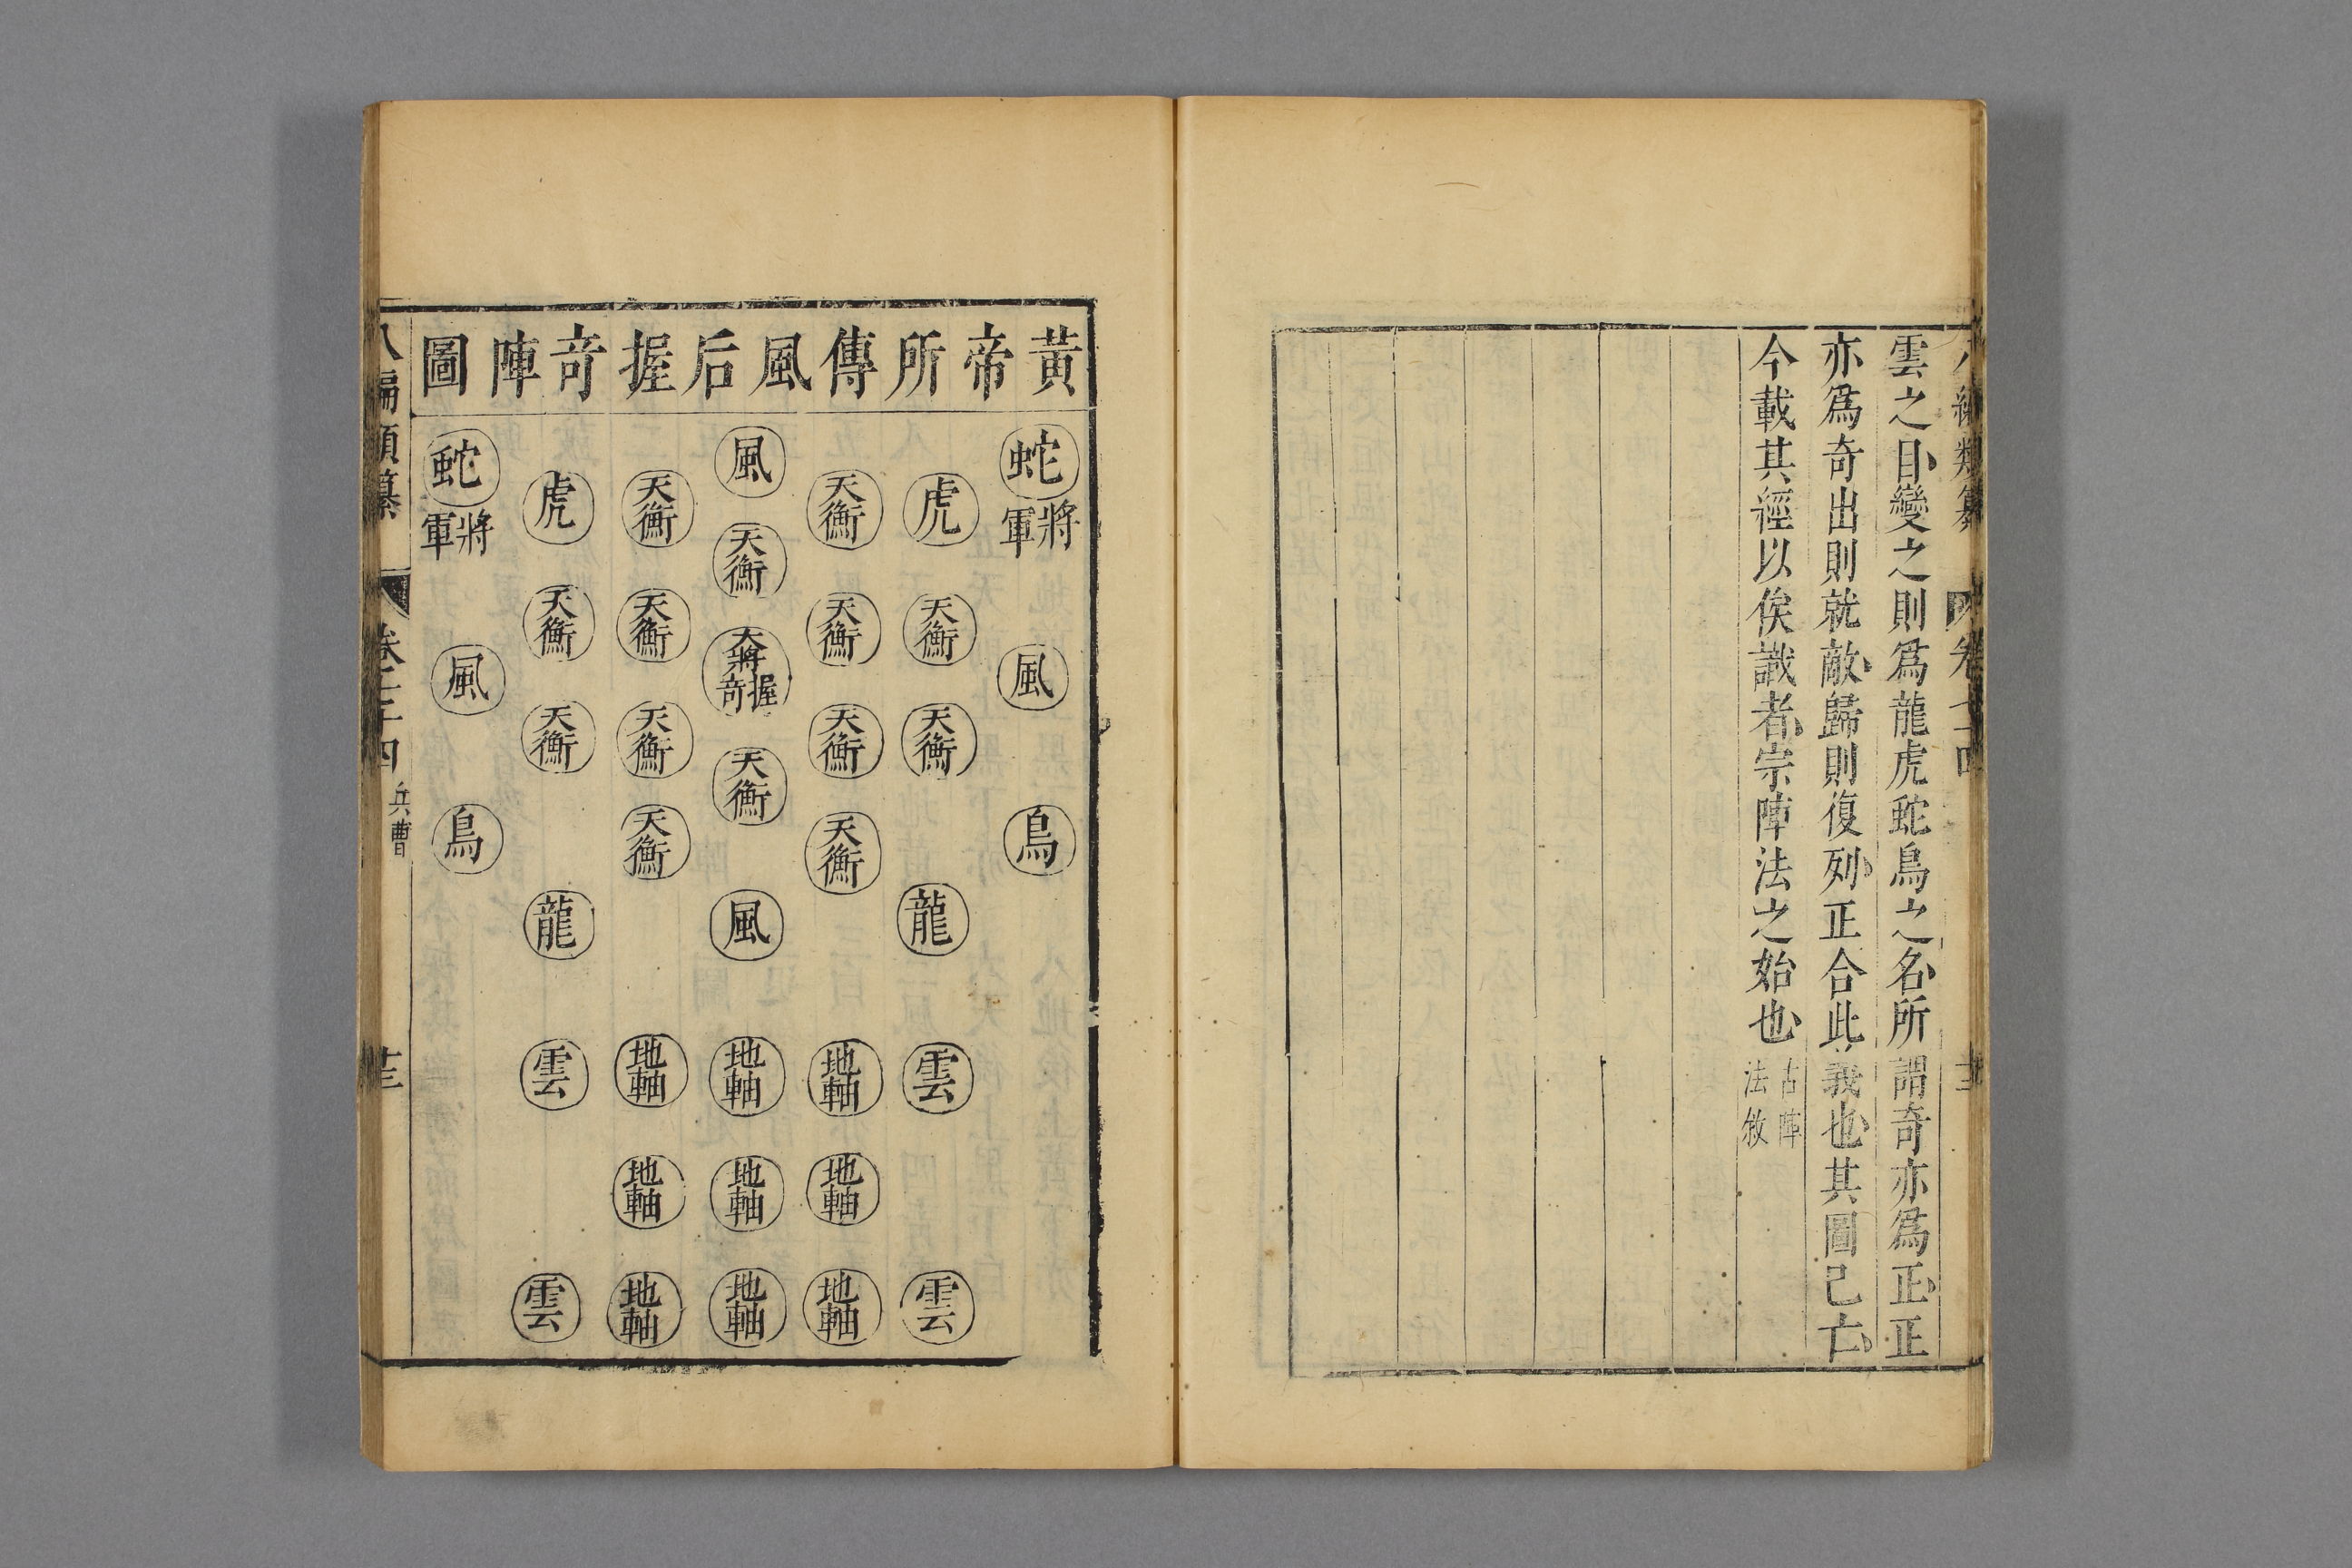 雲之目變之則爲龍虎蛇鳥之名所謂奇亦爲正正
亦爲奇出則就敵歸則復列正合此義也其圖已亡
今載其經以俟識者宗陣法之始也
古陣
法敘
黃帝所傳風后握奇陣圖
蛇
將軍
風
鳥
虎
天衡
天衡
龍
雲
雲
天衡
天衡
天衡
天衡
地軸
地軸
地軸
風
天衡
大將握奇
天衡
風
地軸
地軸
地軸
天衡
天衡
天衡
天衡
地軸
地軸
地軸
虎
天衡
天衡
龍
雲
雲
蛇
將軍
風
鳥
兵曹